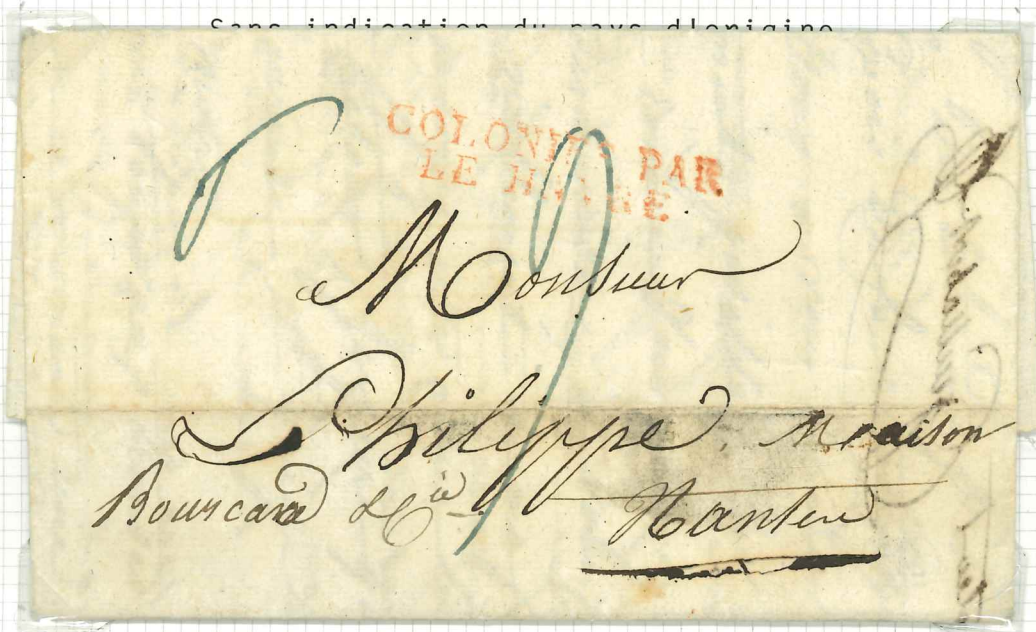 Sans indication du pays d'origine
COLONIES PAR
LE HAVRE
Monsieur
Philippe, Maison
Bourcard & Cie
Nantes